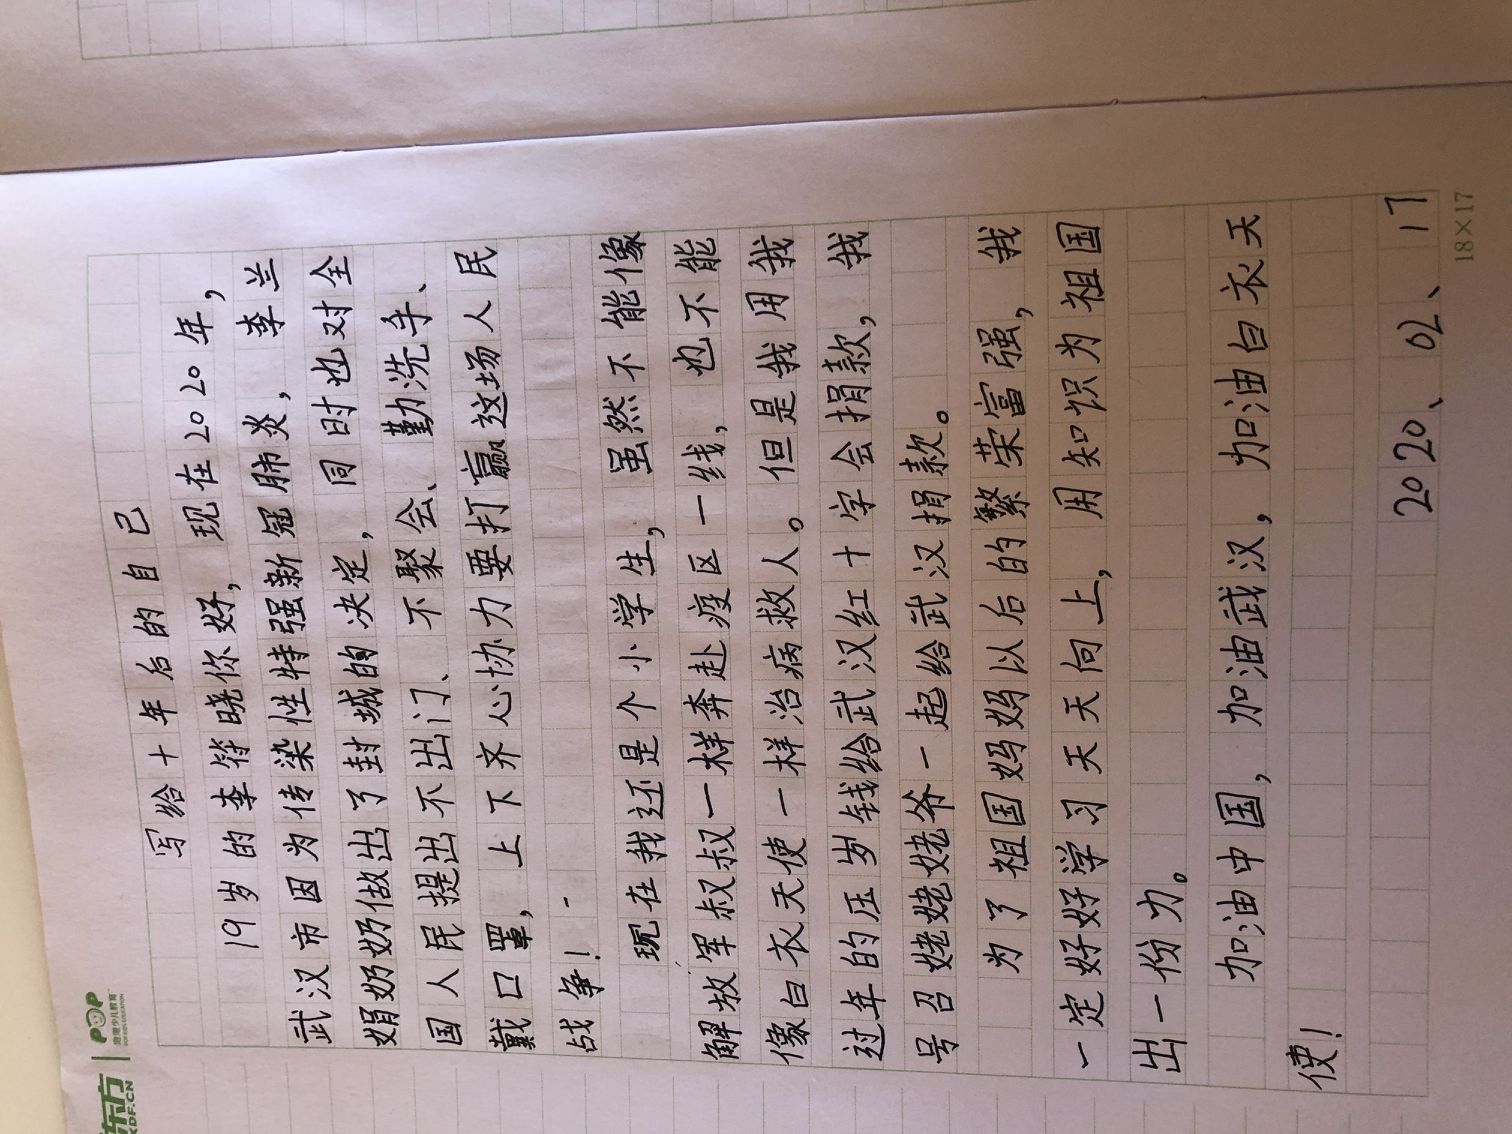 东方
XDF.CN
POP
泡泡少儿教育
写给十年后的自己
19岁的李符晓你好，现在2020年，
武汉市因为传染性特强新冠肺炎，李兰
娟奶奶做出了封城的决定，同时也对全
国人民提出不出门、不聚会、勤洗手、
戴口罩，上下齐心协力要打赢这场人民
战争！
现在我还是个小学生，虽然不能像
解放军叔叔一样奔赴疫区一线，也不能
像白衣天使一样治病救人。但是我用我
过年的压岁钱给武汉红十字会捐款，我
号召姥姥姥爷一起给武汉捐款。
为了祖国妈妈以后的繁荣富强，我
一定好好学习天天向上，用知识为祖国
出一份力。
加油中国，加油武汉，加油白衣天
使！
2020、02、17
18×17